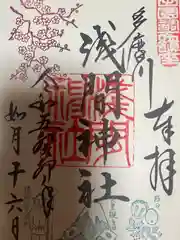 奉拝
多摩川
浅間神社
令和五癸卯年
如月十六日